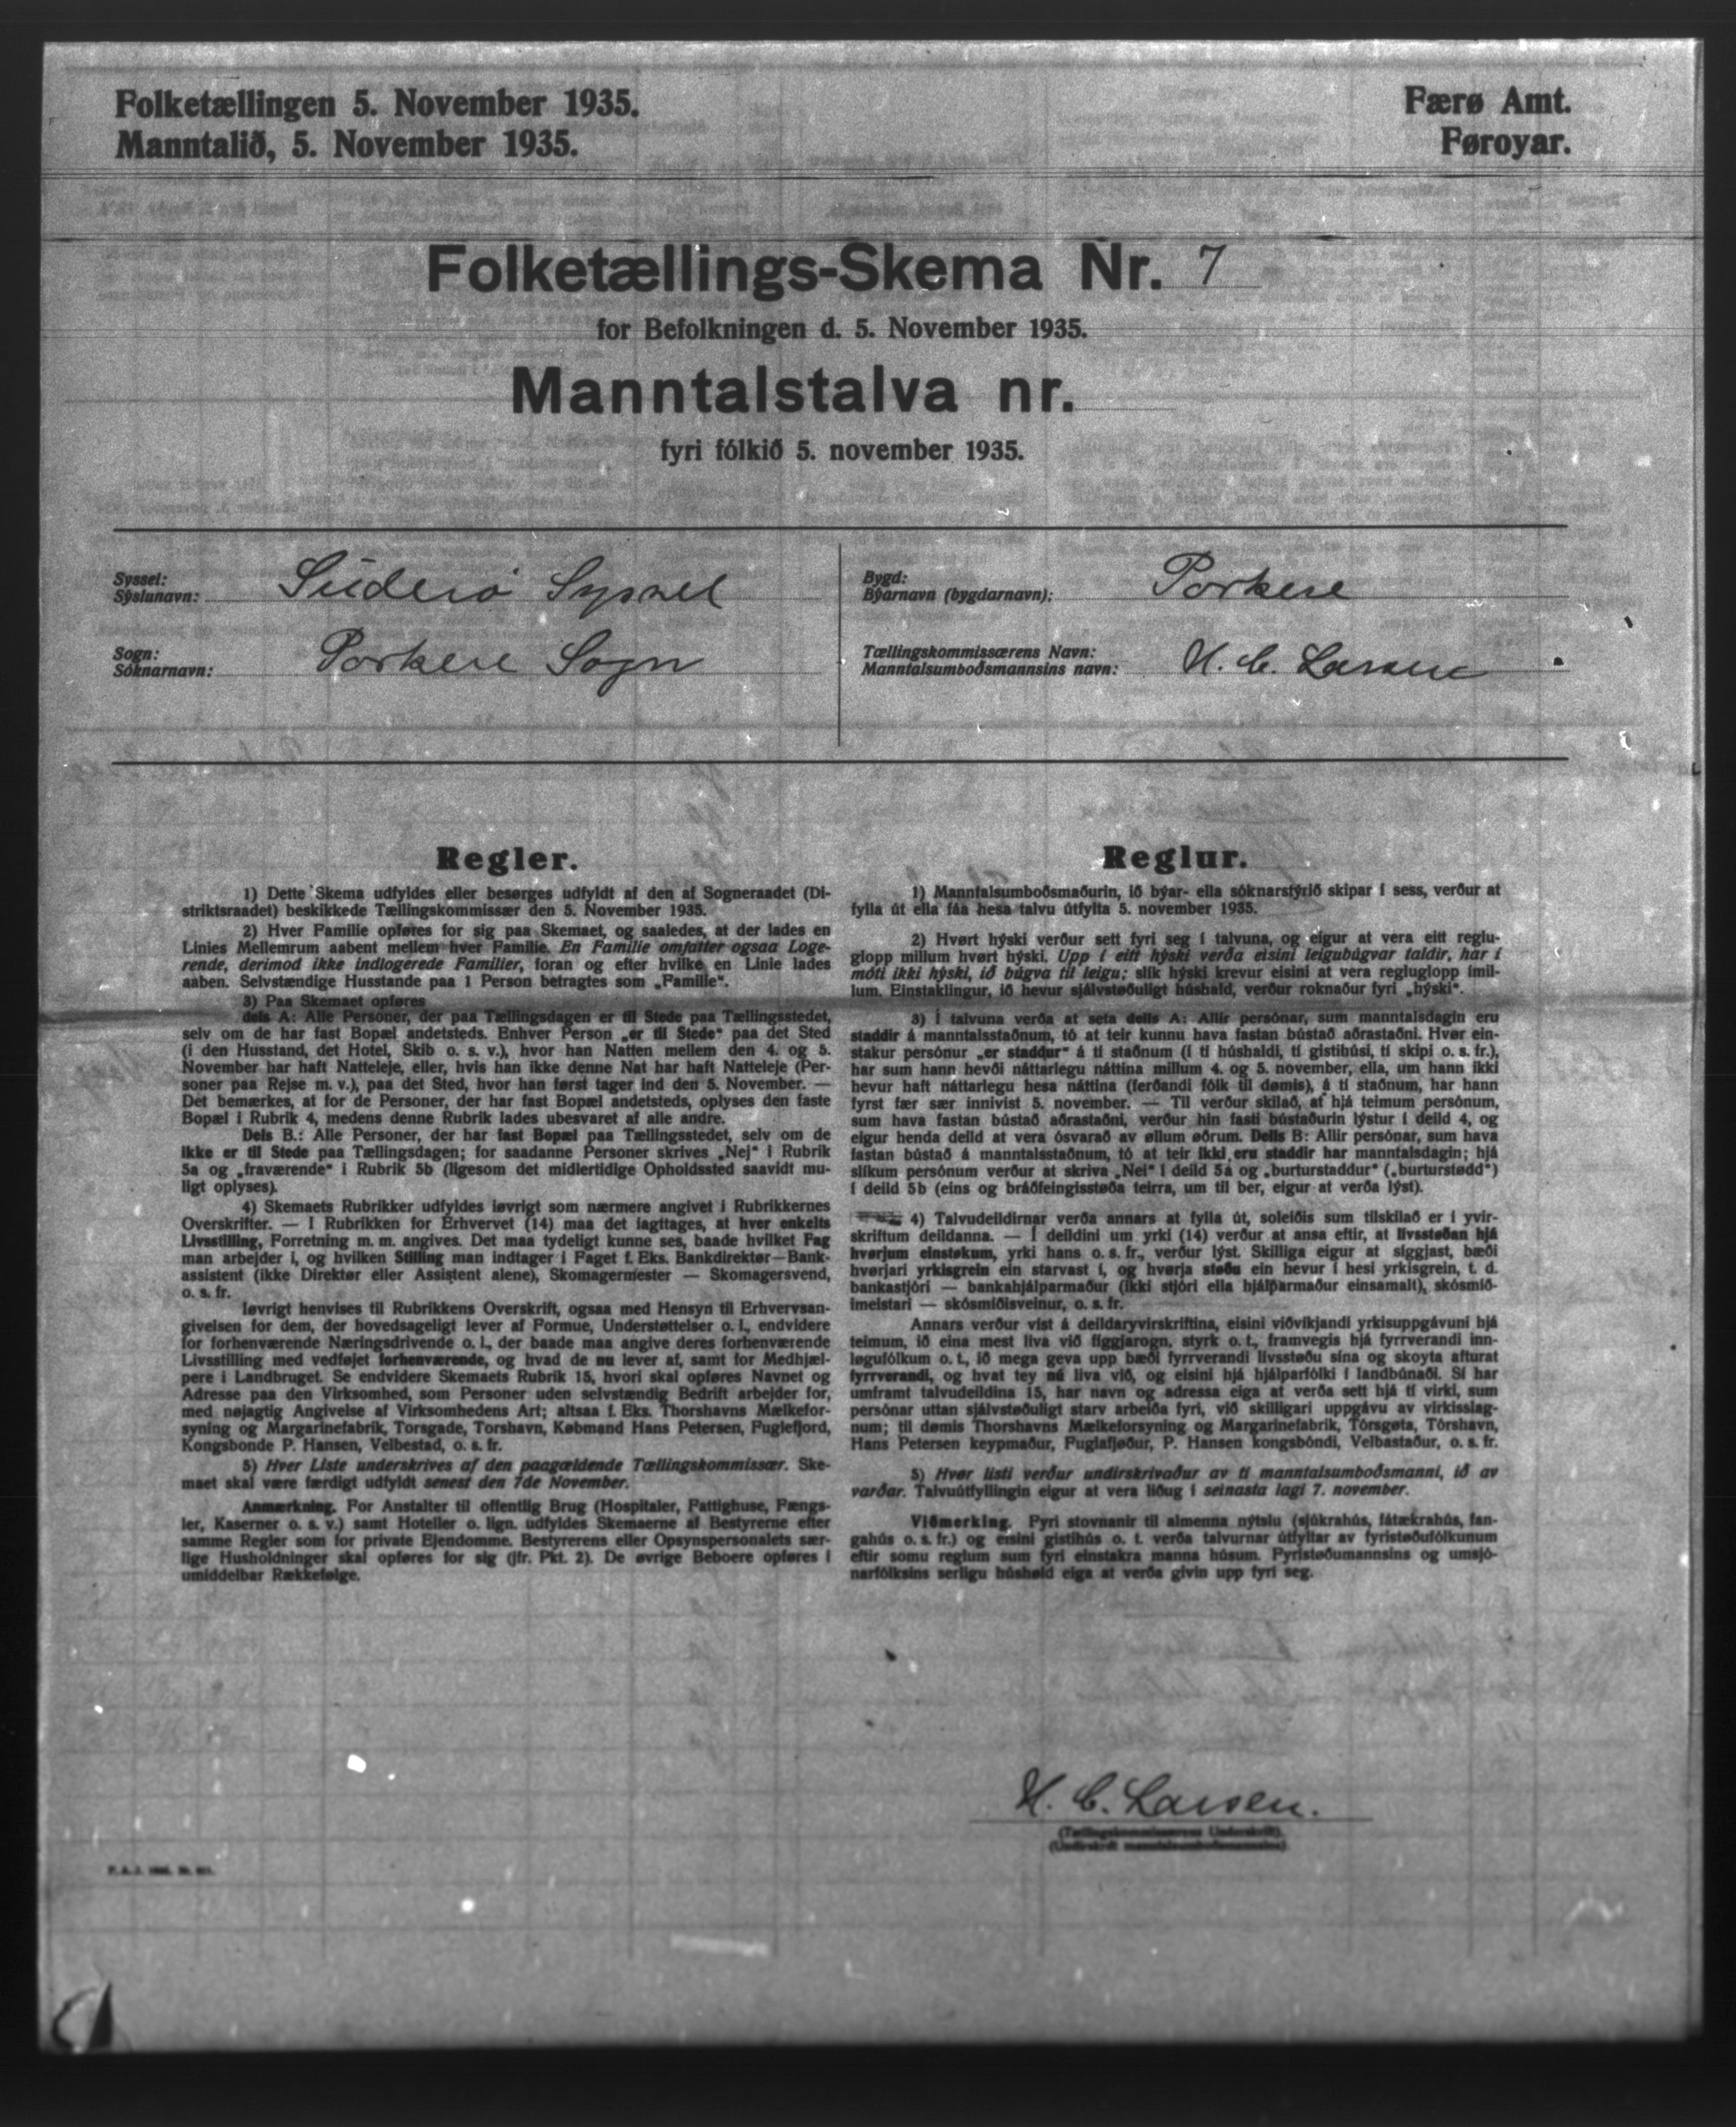 Folketællingen 5. November 1935.
Manntalið, 5. November 1935.
Færø Amt.
Føroyar.
Folketællings-Skema Nr. 7
for Befolkningen d. 5. November 1935.
Manntalstalva nr.
fyri fólkið 5. november 1935.
Syssel:
Sýslunavn: Suderø Syssel
Bygd:
Býarnavn (bygdarnavn): Porkere
Sogn:
Sóknarnavn: Porkere Sogn
Tællingskommissærens Navn:
Manntalsumboðsmannsins navn: H. C. Larsen
Regler.
1) Dette Skema udfyldes eller besørges udfyldt af den af Sogneraadet (Di-
striktsraadet) beskikkede Tællingskommissær den 5. November 1935.
2) Hver Familie opføres for sig paa Skemaet, og saaledes, at der lades en
Linies Mellemrum aabent mellem hver Familie. En Familie omfatter ogsaa Loge-
rende, derimod ikke indlogerede Familier, foran og efter hvilke en Linie lades
aaben. Selvstændige Husstande paa 1 Person betragtes som „Familie“.
3) Paa Skemaet opføres
dels A: Alle Personer, der paa Tællingsdagen er til Stede paa Tællingsstedet,
selv om de har fast Bopæl andetsteds. Enhver Person „er til Stede“ paa det Sted
(i den Husstand, det Hotel, Skib o. s. v.), hvor han Natten mellem den 4. og 5.
November har haft Natteleje, eller, hvis han ikke denne Nat har haft Natteleje (Per-
soner paa Rejse m. v.), paa det Sted, hvor han først tager ind den 5. November. —
Det bemærkes, at for de Personer, der har fast Bopæl andetsteds, oplyses den faste
Bopæl i Rubrik 4, medens denne Rubrik lades ubesvaret af alle andre.
Dels B.: Alle Personer, der har fast Bopæl paa Tællingsstedet, selv om de
ikke er til Stede paa Tællingsdagen; for saadanne Personer skrives „Nej“ i Rubrik
5a og „fraværende“ i Rubrik 5b (ligesom det midlertidige Opholdssted saavidt mu-
ligt oplyses).
4) Skemaets Rubrikker udfyldes iøvrigt som nærmere angivet i Rubrikkernes
Overskrifter. — I Rubrikken for Erhvervet (14) maa det iagttages, at hver enkelts
Livsstilling, Forretning m. m. angives. Det maa tydeligt kunne ses, baade hvilket Fag
man arbejder i, og hvilken Stilling man indtager i Faget f. Eks. Bankdirektør—Bank-
assistent (ikke Direktør eller Assistent alene), Skomagermester — Skomagersvend,
o. s. fr.
Iøvrigt henvises til Rubrikkens Overskrift, ogsaa med Hensyn til Erhvervsan-
givelsen for dem, der hovedsageligt lever af Formue, Understøttelser o. l., endvidere
for forhenværende Næringsdrivende o. l., der baade maa angive deres forhenværende
Livsstilling med vedføjet forhenværende, og hvad de nu lever af, samt for Medhjæl-
pere i Landbruget. Se endvidere Skemaets Rubrik 15, hvori skal opføres Navnet og
Adresse paa den Virksomhed, som Personer uden selvstændig Bedrift arbejder for,
med nøjagtig Angivelse af Virksomhedens Art; altsaa f. Eks. Thorshavns Mælkefor-
syning og Margarinefabrik, Torsgade, Torshavn, Købmand Hans Petersen, Fuglefjord,
Kongsbonde P. Hansen, Velbestad, o. s. fr.
5) Hver Liste underskrives af den paagældende Tællingskommissær. Ske-
maet skal være færdigt udfyldt senest den 7de November.
Anmærkning. For Anstalter til offentlig Brug (Hospitaler, Fattighuse, Fængs-
ler, Kaserner o. s. v.) samt Hoteller o. lign. udfyldes Skemaerne af Bestyrerne efter
samme Regler som for private Ejendomme. Bestyrerens eller Opsynspersonalets sær-
lige Husholdninger skal opføres for sig (jfr. Pkt. 2). De øvrige Beboere opføres i
umiddelbar Rækkefølge.
Reglur.
1) Manntalsumboðsmaðurin, ið býar- ella sóknarstýrið skipar í sess, verður at
fylla út ella fáa hesa talvu útfylta 5. november 1935.
2) Hvørt hýski verður sett fyri seg í talvuna, og eigur at vera eitt reglu-
glopp millum hvørt hýski. Upp í eitt hýski verða eisini leigubúgvar taldir, har í
móti ikki hýski, ið búgva til leigu; slík hýski krevur eisini at vera regluglopp imil-
lum. Einstaklingur, ið hevur sjálvstøðuligt húshald, verður roknaður fyri „hýski“.
3) Í talvuna verða at seta dells A: Allir persónar, sum manntalsdagin eru
staddir á manntalsstaðnum, tó at teir kunnu hava fastan bústað aðrastaðni. Hvør ein-
stakur persónur „er staddur“ á tí staðnum (í tí húshaldi, tí gistihúsi, tí skipi o. s. fr.),
har sum hann hevði náttarlegu náttina millum 4. og 5. november, ella, um hann ikki
hevur haft náttarlegu hesa náttina (ferðandi fólk til dømis), á tí staðnum, har hann
fyrst fær sær innivist 5. november. — Til verður skilað, at hjá teimum persónum,
sum hava fastan bústað aðrastaðni, verður hin fasti bústaðurin lýstur í deild 4, og
eigur henda deild at vera ósvarað av øllum øðrum. Dells B: Allir persónar, sum hava
fastan bústað á manntalsstaðnum, tó at teir ikki eru staddir har manntalsdagin; hjá
slíkum persónum verður at skriva „Nei“ í deild 5a og „burturstaddur“ („burturstødd“)
í deild 5b (eins og bráðfeingisstøða teirra, um til ber, eigur at verða lýst).
4) Talvudeildirnar verða annars at fylla út, soleiðis sum tilskilað er í yvir-
skriftum deildanna. — Í deildini um yrki (14) verður at ansa eftir, at livsstøðan hjá
hvørjum einstøkum, yrki hans o. s. fr., verður lýst. Skilliga eigur at siggjast, bæði
hvørjari yrkisgrein ein starvast í, og hvørja støðu ein hevur í hesi yrkisgrein, t. d.
bankastjóri — bankahjálparmaður (ikki stjóri ella hjálparmaður einsamalt), skósmið-
imeistari — skósmiðisveinur, o. s. fr.
Annars verður víst á deildaryvirskriftina, eisini viðvíkjandi yrkisuppgávuni hjá
teimum, ið eina mest liva við figgjarogn, styrk o. t., framvegis hjá fyrrverandi inn-
løgufólkum o. t., ið mega geva upp bæði fyrrverandi livsstøðu sína og skoyta afturat
fyrrverandi, og hvat tey nú liva við, og eisini hjá hjálparfólki í landbúnaði. Sí har
umframt talvudeildina 15, har navn og adressa eiga at verða sett hjá tí virki, sum
persónar uttan sjálvstøðuligt starv arbeiða fyri, við skilligari uppgávu av virkisslag-
num; til dømis Thorshavns Mælkeforsyning og Margarinefabrik, Tórsgøta, Tórshavn,
Hans Petersen keypmaður, Fuglafjøður, P. Hansen kongsbóndi, Velbastaður, o. s. fr.
5) Hvør listi verður undirskrivaður av tí manntalsumboðsmanni, ið av
varðar. Talvuútfyllingin eigur at vera liðug í seinasta lagi 7. november.
Viðmerking. Fyri stovnanir til almenna nýtslu (sjúkrahús, fátækrahús, fan-
gahús o. s. fr.) og eisini gistihús o. t. verða talvurnar útfyltar av fyristøðufólkunum
eftir somu reglum sum fyri einstakra manna húsum. Fyristøðumannsins og umsjó-
narfólksins serligu húshøld eiga at verða givin upp fyri seg.
H. C. Larsen.
(Tællingskommissærens Underskrift).
(Undirskrift manntalsumboðsmannsins)